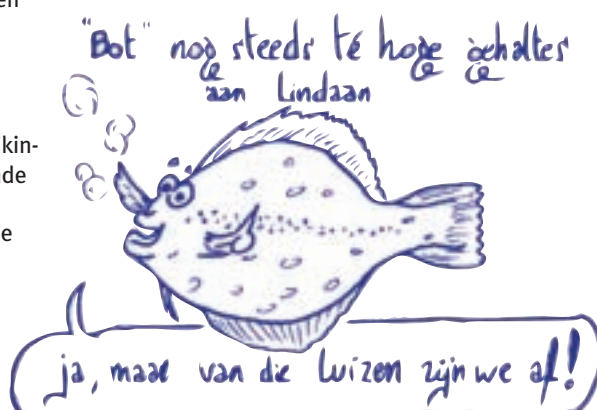 en
"Bot" nog steeds té hoge gehaltes
aan Lindaan
kin-
nde
e
ja, maar van die luizen zijn we af!